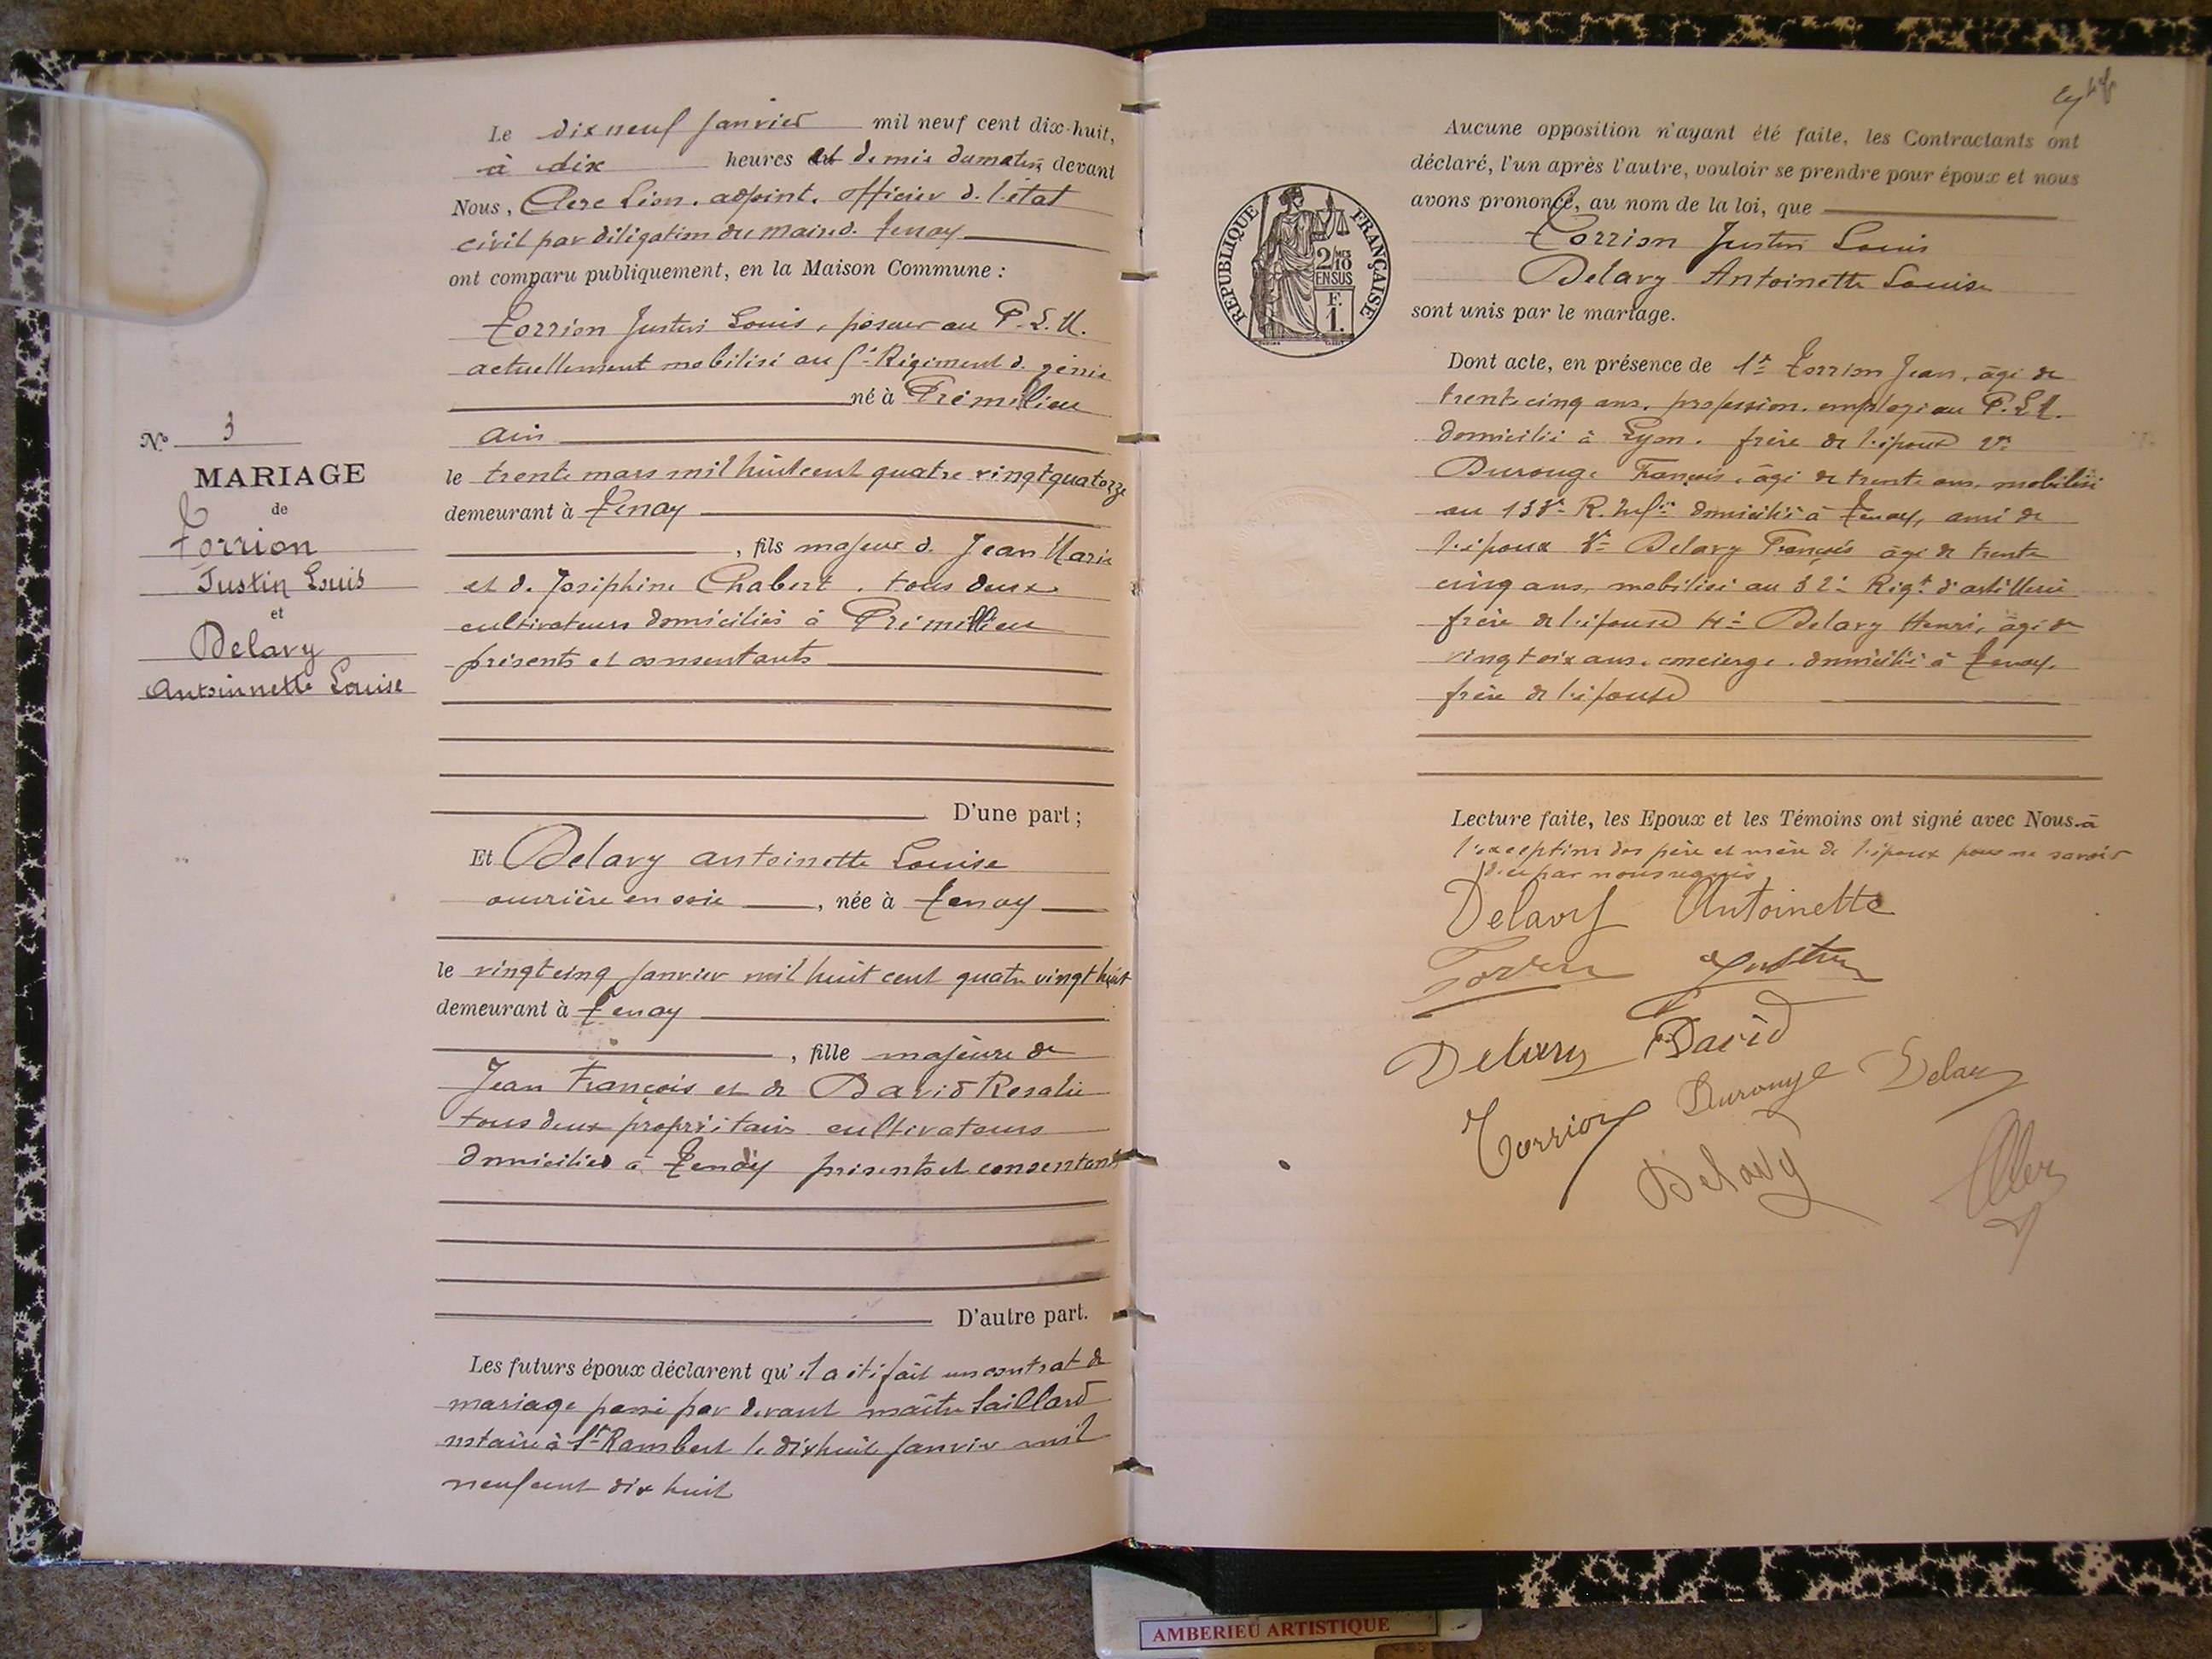 Le dix neuf Janvier mil neuf cent dix-huit,
à dix heures et demie du matin, devant
Nous, Clerc Léon, adjoint, officier de l'état
civil par délégation du maire de Tenay
ont comparu publiquement, en la Maison Commune :
Torrion Justin Louis, poseur au P.L.M.
actuellement mobilisé au 5e Régiment de génie
né à Prémillieu
Ain
le trente mars mil huit cent quatre vingt quatorze
demeurant à Tenay
, fils majeur de Jean Marie
et de Joséphine Chabert, tous deux
cultivateurs domiciliés à Prémillieu
présents et consentants
D'une part ;
Et Delavy Antoinette Louise
ouvrière en soie, née à Tenay
le vingt cinq Janvier mil huit cent quatre vingt huit
demeurant à Tenay
, fille majeure de
Jean François et de David Rosalie
tous deux propriétaires cultivateurs
domiciliés à Tenay présents et consentants
D'autre part.
Les futurs époux déclarent qu'il a été fait un contrat de
mariage passé par devant maître Saillard
notaire à St Rambert le dix huit Janvier mil
neuf cent dix huit
No 3
MARIAGE
de
Torrion
Justin Louis
et
Delavy
Antoinnette Louise
Aucune opposition n'ayant été faite, les Contractants ont
déclaré, l'un après l'autre, vouloir se prendre pour époux et nous
avons prononcé, au nom de la loi, que
Torrion Justin Louis
Delavy Antoinette Louise
sont unis par le mariage.
RÉPUBLIQUE FRANÇAISE
2/10 MES
EN SUS
F.
1.
Dont acte, en présence de 1e Torrion Jean, âgé de
trente cinq ans, profession employé au P.L.M.
domicilié à Lyon, frère de l'époux 2e
Durouge François, âgé de trente ans, mobilisé
au 133e R. Infie domicilié à Tenay, ami de
l'époux 3e Delavy François âgé de trente
cinq ans, mobilisé au 32e Régt d'artillerie
frère de l'épouse 4e Delavy Henri, âgé de
vingt six ans, concierge, domicilié à Tenay,
frère de l'épouse
Lecture faite, les Epoux et les Témoins ont signé avec Nous à
l'exception des père et mère de l'époux pour ne savoir
de ce par nous requis
Delavy Antoinette
Torrion Justin
Delavy David
Torrion Durouge Delavy
Delavy Clerc
AMBERIEU ARTISTIQUE